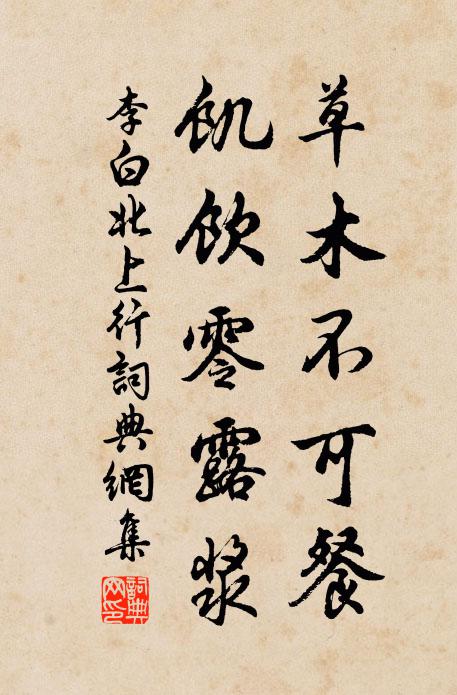 草木不可餐
飢飲零露漿
李白北上行詞典網集
詞典
网印